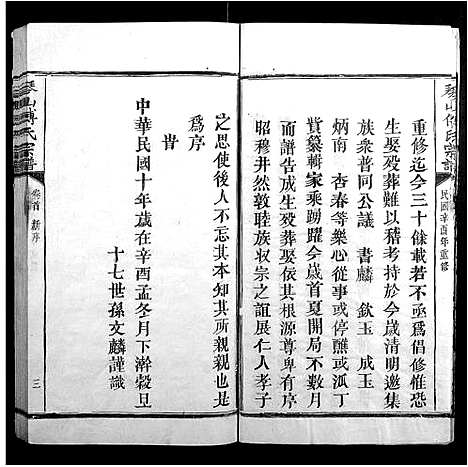 琴山傅氏宗譜
民國辛酉年重修
重修迄今三十餘載若不亟爲倡修惟恐
生娶殁葬難以稽考持於今歲清明邀集
族衆普阿公議　書麟　欽玉　成玉
炳南　杏春等樂心從事或停醮或派丁
貲纂輯家乘踴躍今歲首夏開局不數月
而譜告成生殁葬娶依其根源尊卑有序
昭穆井然敦睦族敬宗之誼展仁人孝子
之思使後人不忘其本知其所親親也是
爲序
旹
中華民國十年歲在辛酉孟冬月下澣穀旦
十七世孫文麟謹識
琴山傅氏宗譜
卷首　新序
三